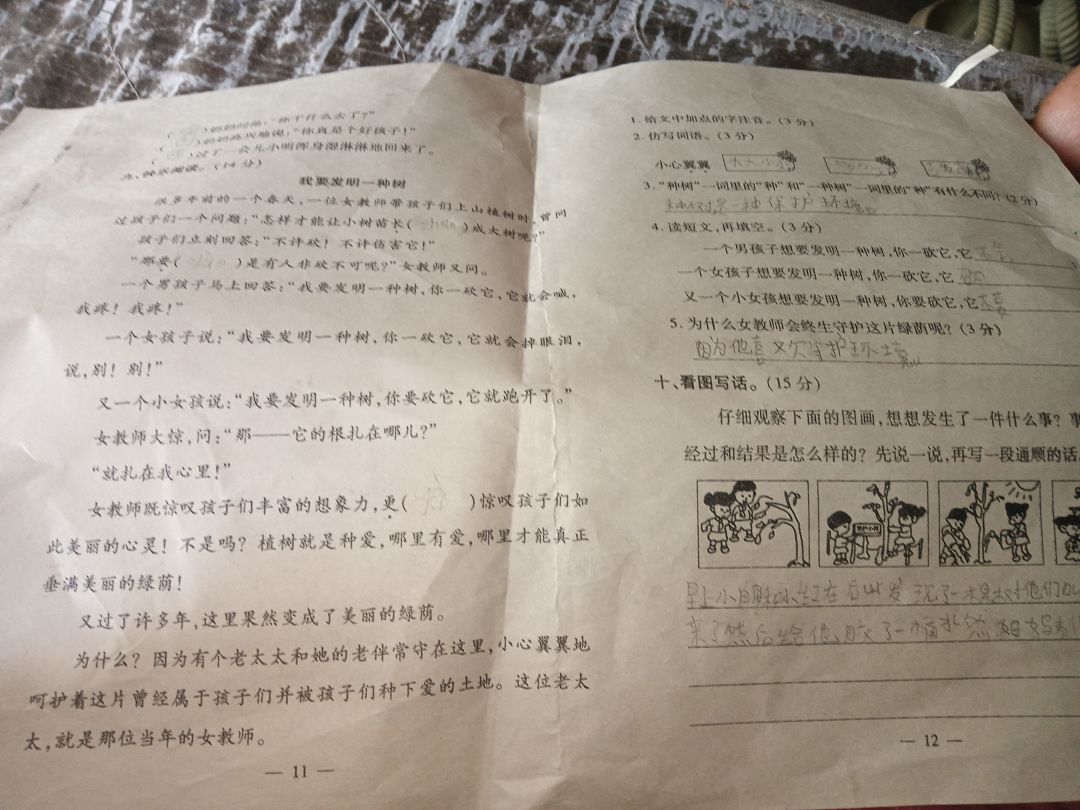 (    )妈妈问他:“你干什么去了?”
(    )妈妈高兴地说:“你真是个好孩子!”
(    )过了一会儿小明浑身湿淋淋地回来了。
九、快乐阅读。(14 分)
我要发明一种树
很多年前的一个春天,一位女教师带孩子们上山植树时,曾问
过孩子们一个问题:“怎样才能让小树苗长(    )成大树呢?”
孩子们立刻回答:“不许砍!不许伤害它!”
“那要(    )是有人非砍不可呢?”女教师又问。
一个男孩子马上回答:“我要发明一种树,你一砍它,它就会喊,
我疼!我疼!”
一个女孩子说:“我要发明一种树,你一砍它,它就会掉眼泪,
说,别!别!”
又一个小女孩说:“我要发明一种树,你要砍它,它就跑开了。”
女教师大惊,问:“那——它的根扎在哪儿?”
“就扎在我心里!”
女教师既惊叹孩子们丰富的想象力,更(    )惊叹孩子们如
此美丽的心灵!不是吗?植树就是种爱,哪里有爱,哪里才能真正
垂满美丽的绿荫!
又过了许多年,这里果然变成了美丽的绿荫。
为什么?因为有个老太太和她的老伴常守在这里,小心翼翼地
呵护着这片曾经属于孩子们并被孩子们种下爱的土地。这位老太
太,就是那位当年的女教师。
— 11 —
1. 给文中加点的字注音。(3 分)
2. 仿写词语。(3 分)
小心翼翼
3. “种树”一词里的“种”和“一种树”一词里的“种”有什么不同?(2 分)
种树是一种保护环境
4. 读短文,再填空。(3 分)
一个男孩子想要发明一种树,你一砍它,它
一个女孩子想要发明一种树,你一砍它,它
又一个小女孩想要发明一种树,你要砍它,它
5. 为什么女教师会终生守护这片绿荫呢?(3 分)
因为他喜欢守护环境
十、看图写话。(15 分)
仔细观察下面的图画,想想发生了一件什么事?事
经过和结果是怎么样的?先说一说,再写一段通顺的话。
早上小明和小红在后山发现了一棵树他们
来了然后给他
— 12 —